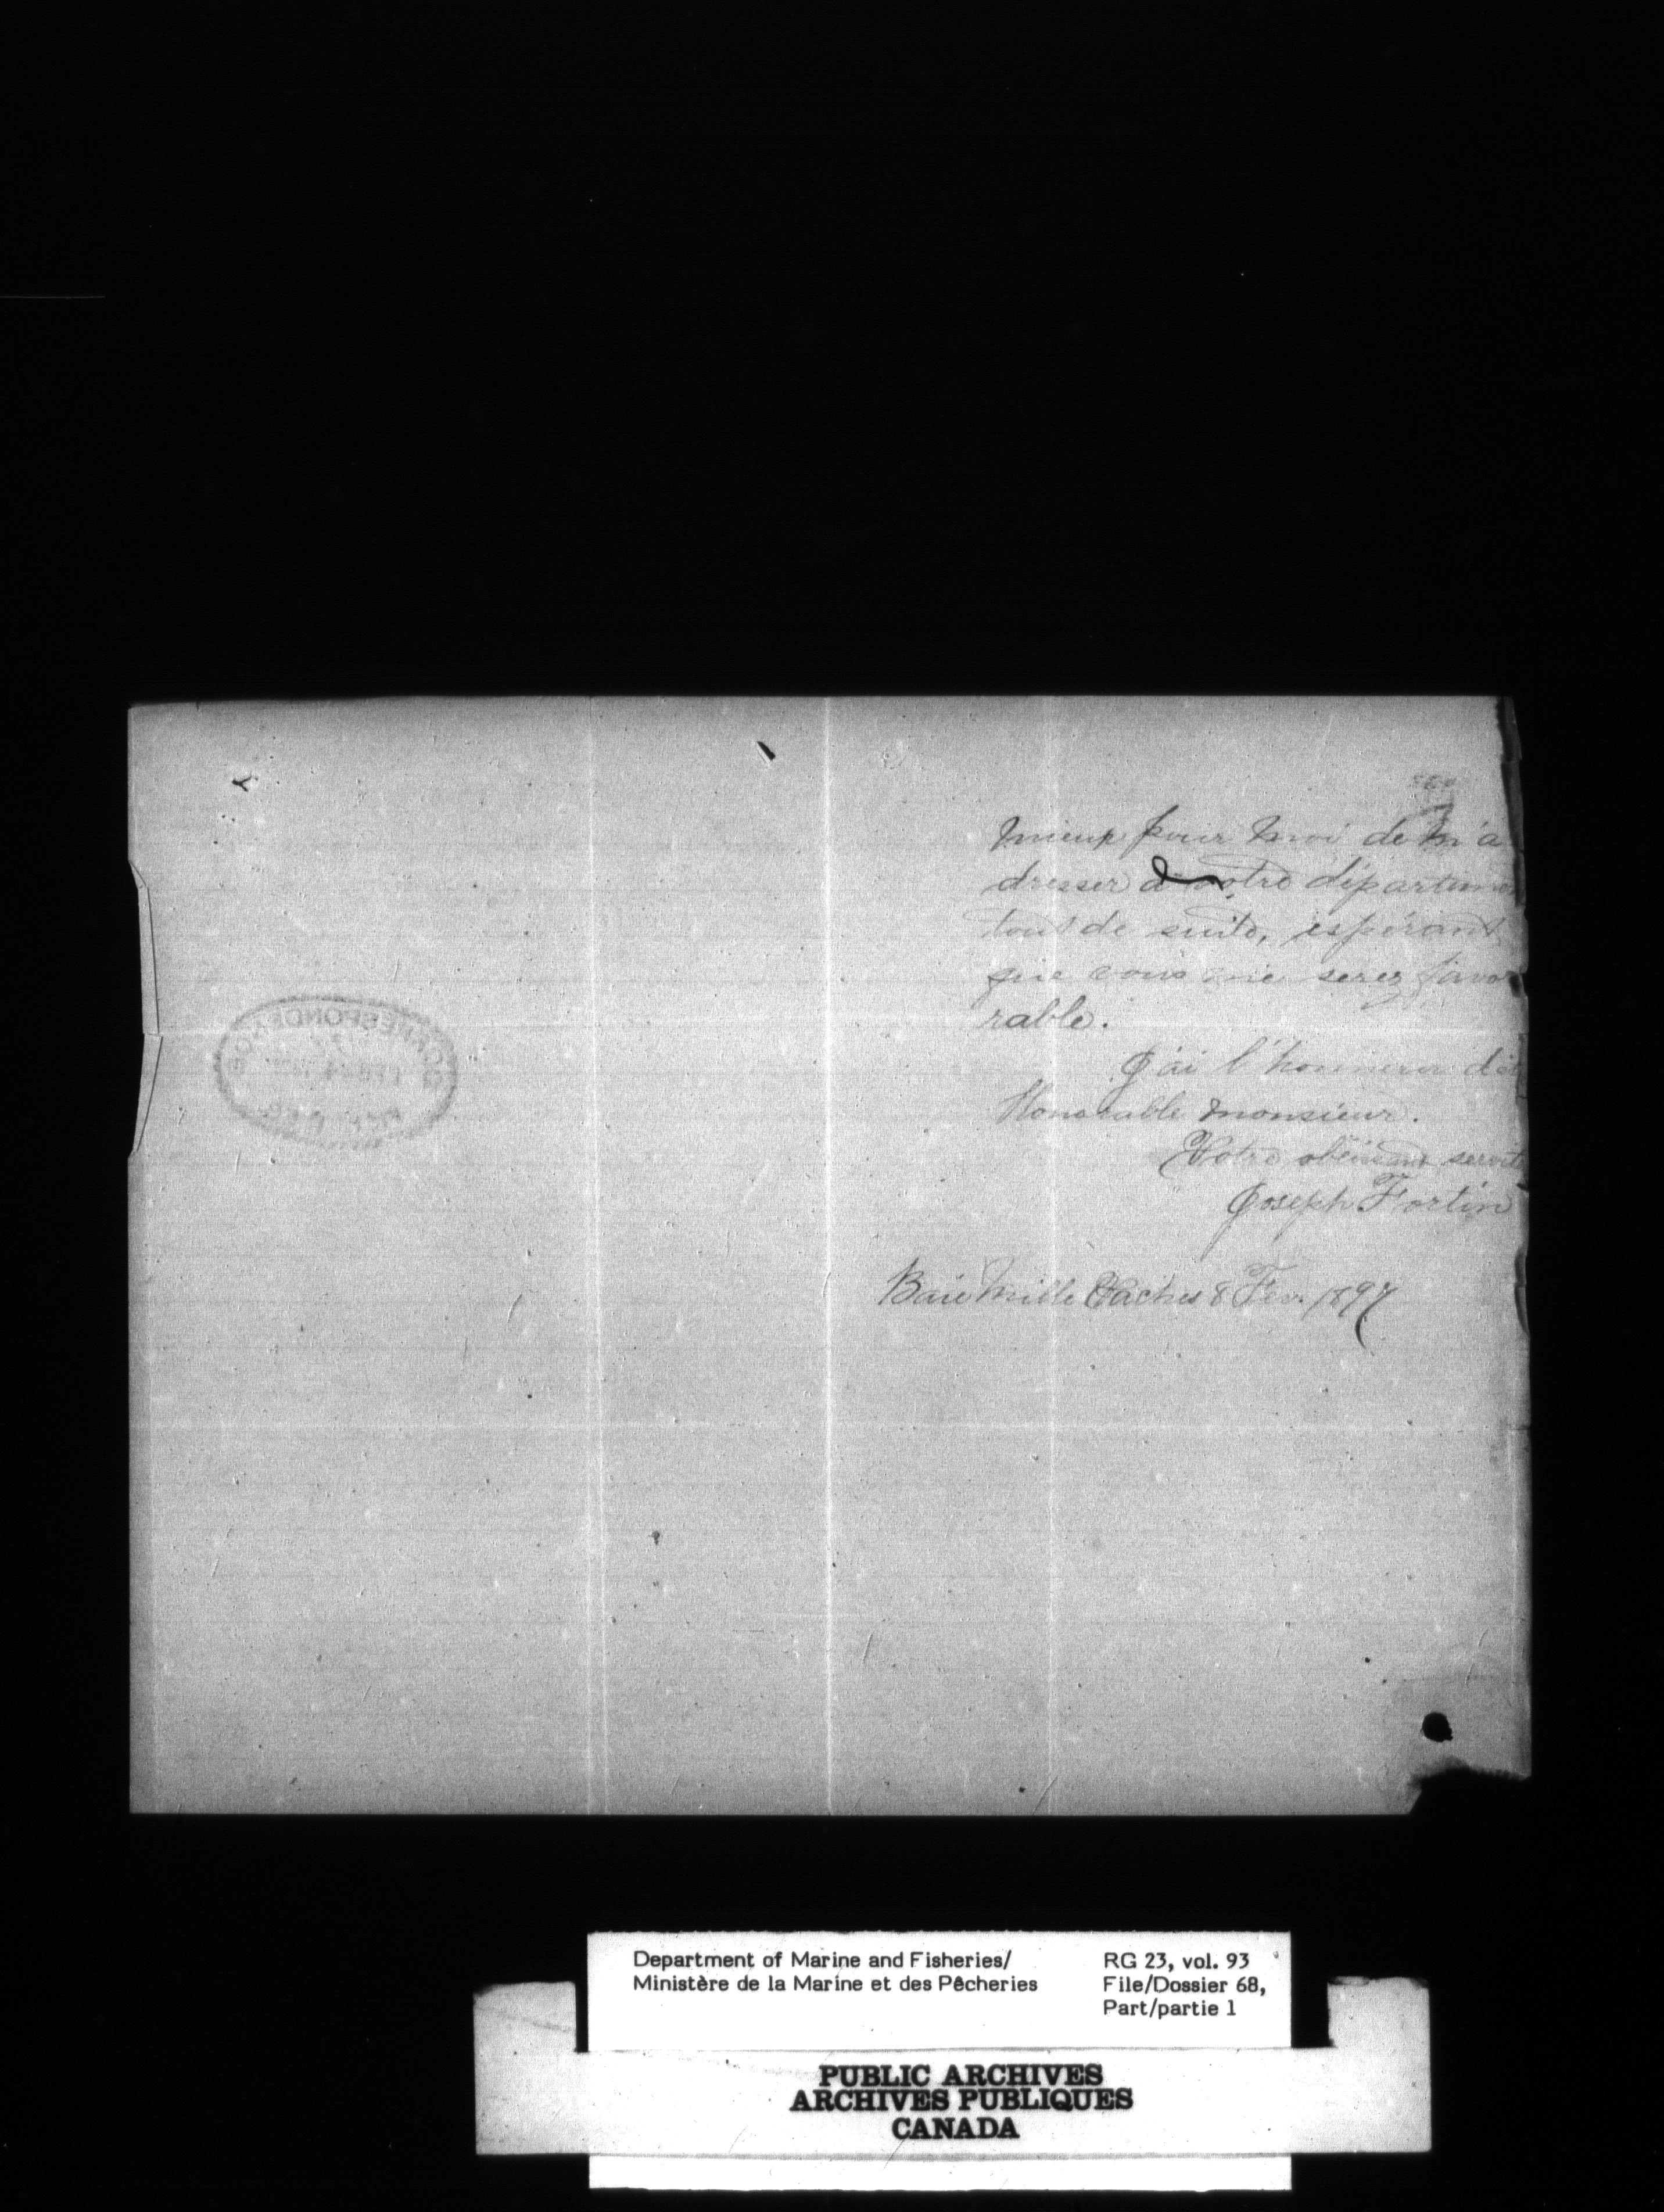 mieux pour moi de m'a
dresser à votre départemen
tout de suite, espérant
que vous me serez favo
rable.
J'ai l'honneur d'êt
Honorable Monsieur.
Votre obéissant servit
Joseph Fortin
Baie Mille Vaches 8 Fev. 1897
CORRESPONDENCE
Department of Marine and Fisheries/
Ministère de la Marine et des Pêcheries
RG 23, vol. 93
File/Dossier 68,
Part/partie 1
PUBLIC ARCHIVES
ARCHIVES PUBLIQUES
CANADA